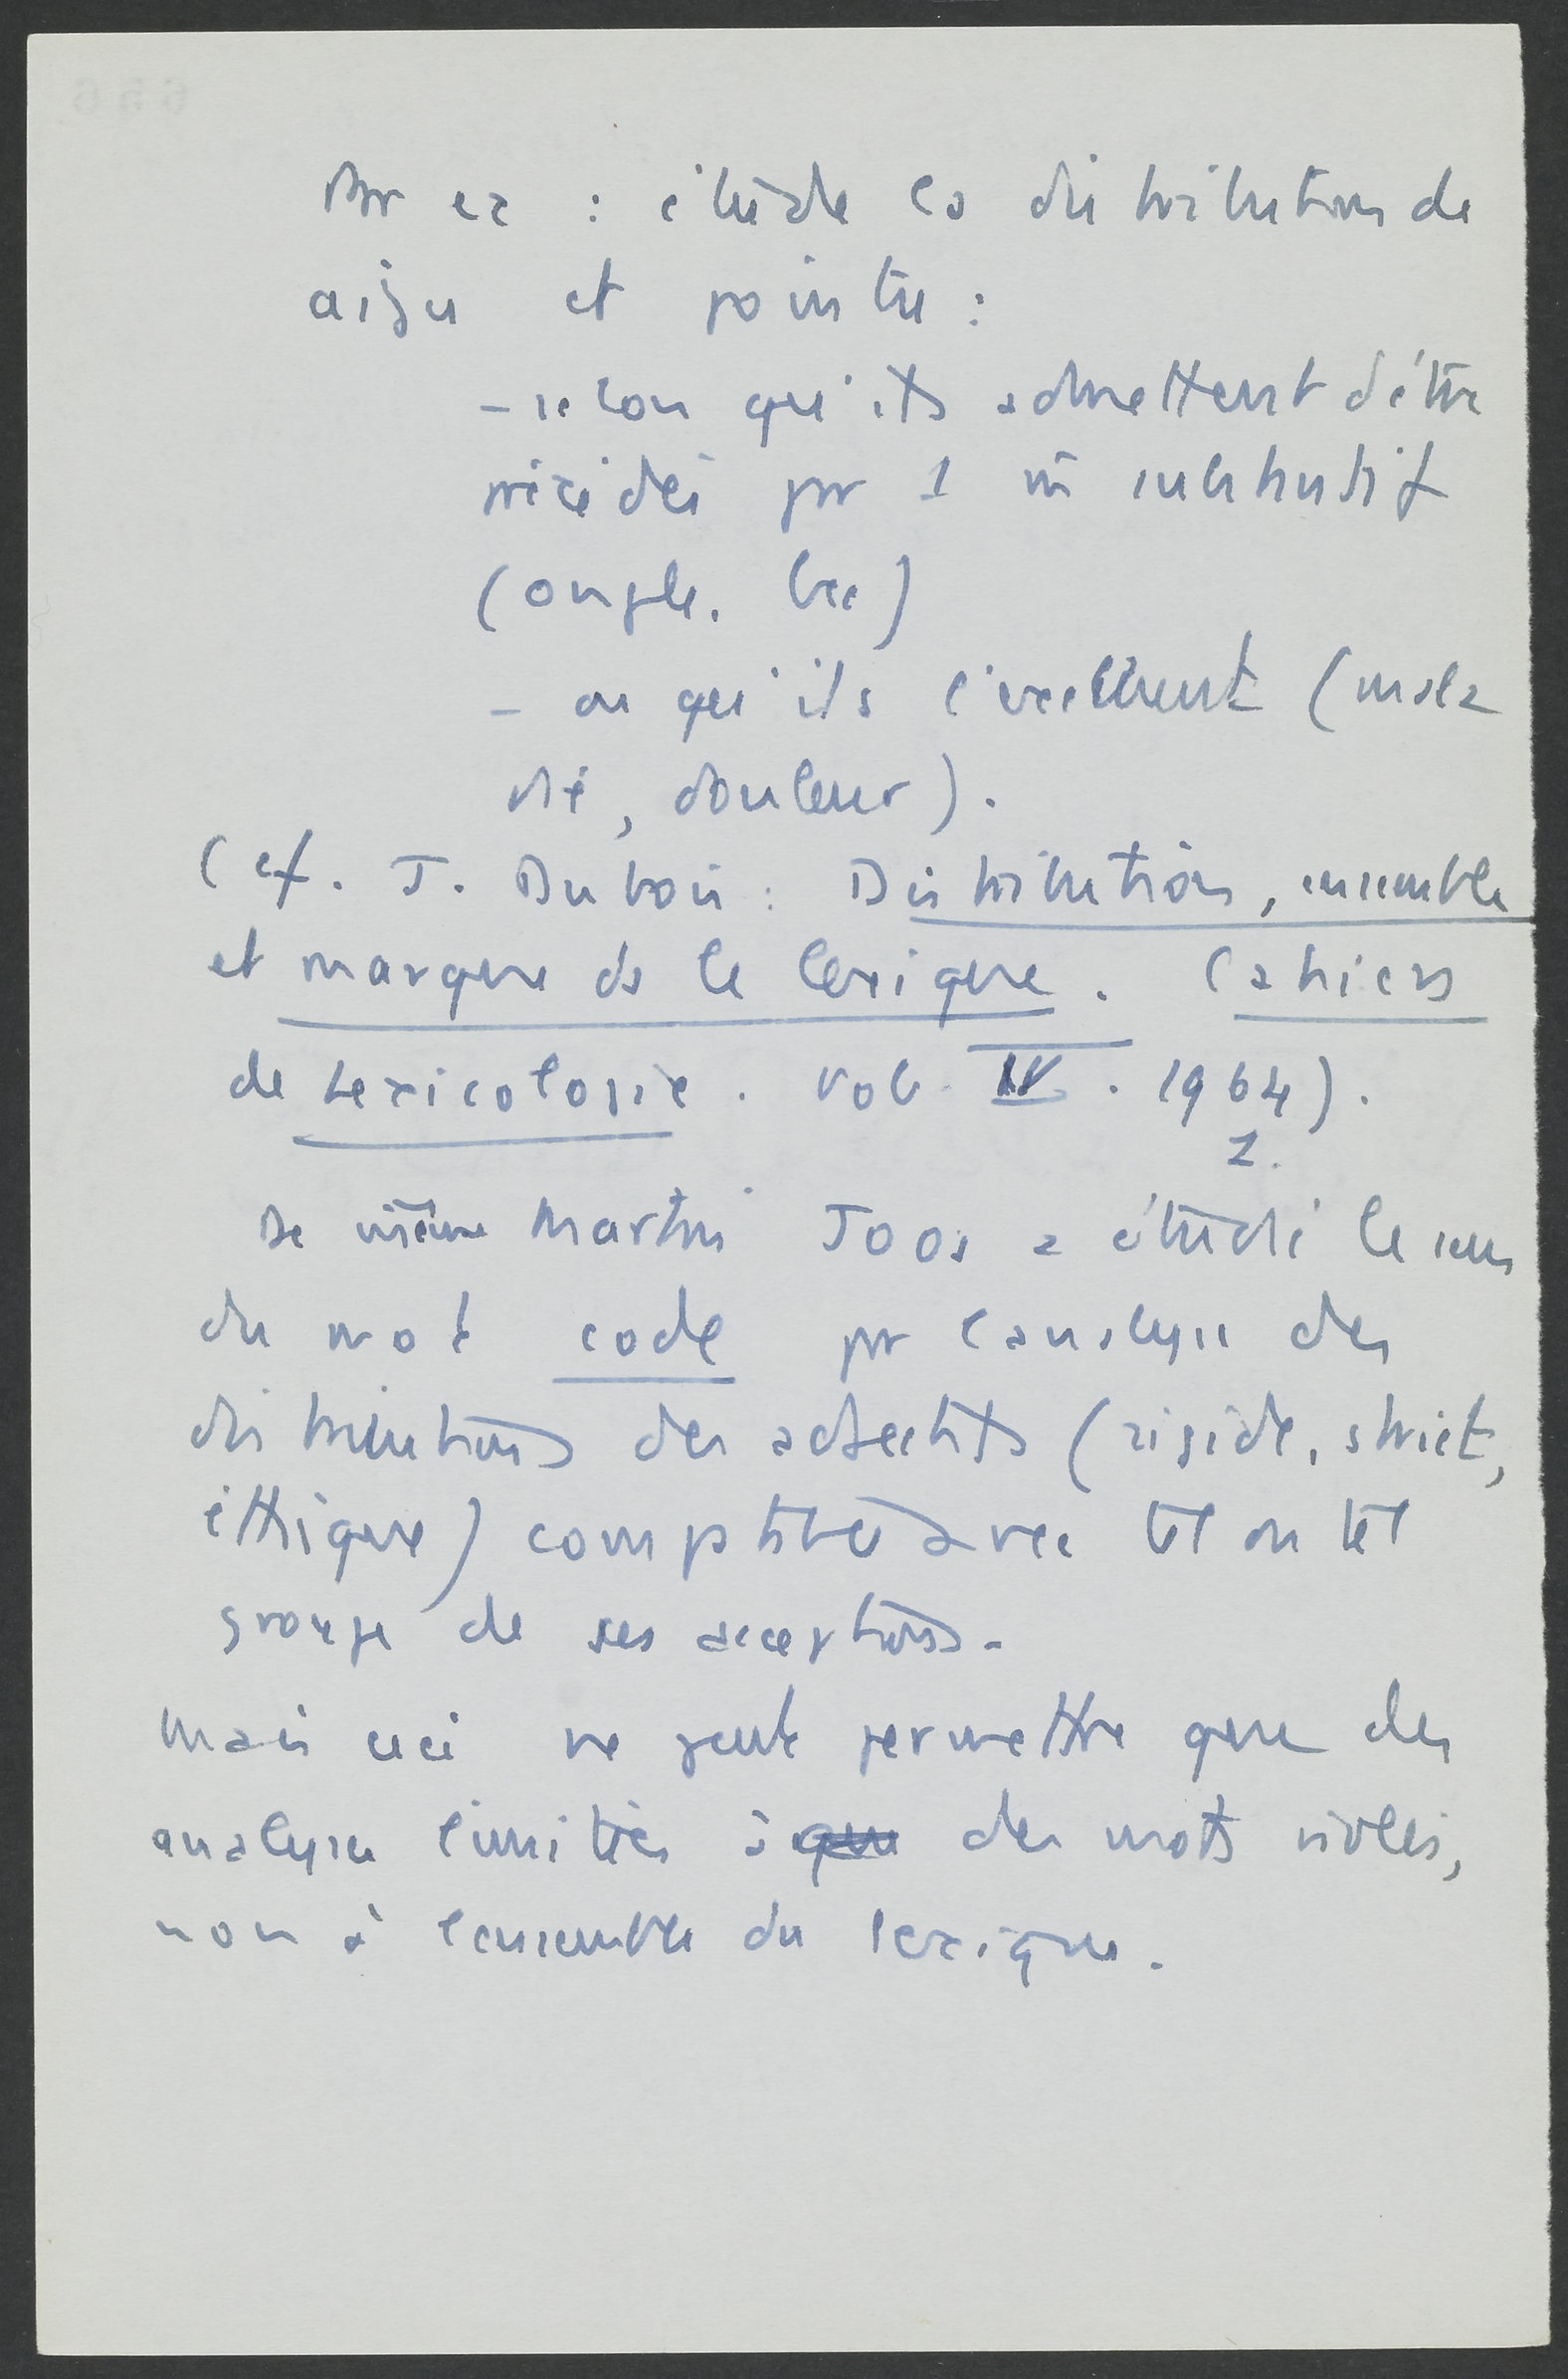 Par ex : étude la distribution de
aigu et pointu :
- selon qu'ils admettent d'être
précédés par 1 m̂ substantif
(ongle. bec)
- ou qu'ils l'excluent (mala
die, douleur).
(cf. J. Dubois : Distribution, ensemble
et marque ds le lexique. Cahiers
de Lexicologie. vol. IV. 1964).
1.
De même Martin Joos a étudié le sens
du mot code par l'analyse des
distributions des adjectifs (rigide, strict,
éthique) compatibles avec tel ou tel
groupe de ses acceptions.
Mais ceci ne peut permettre que des
analyses limitées à que des mots isolés,
non à l'ensemble du lexique.